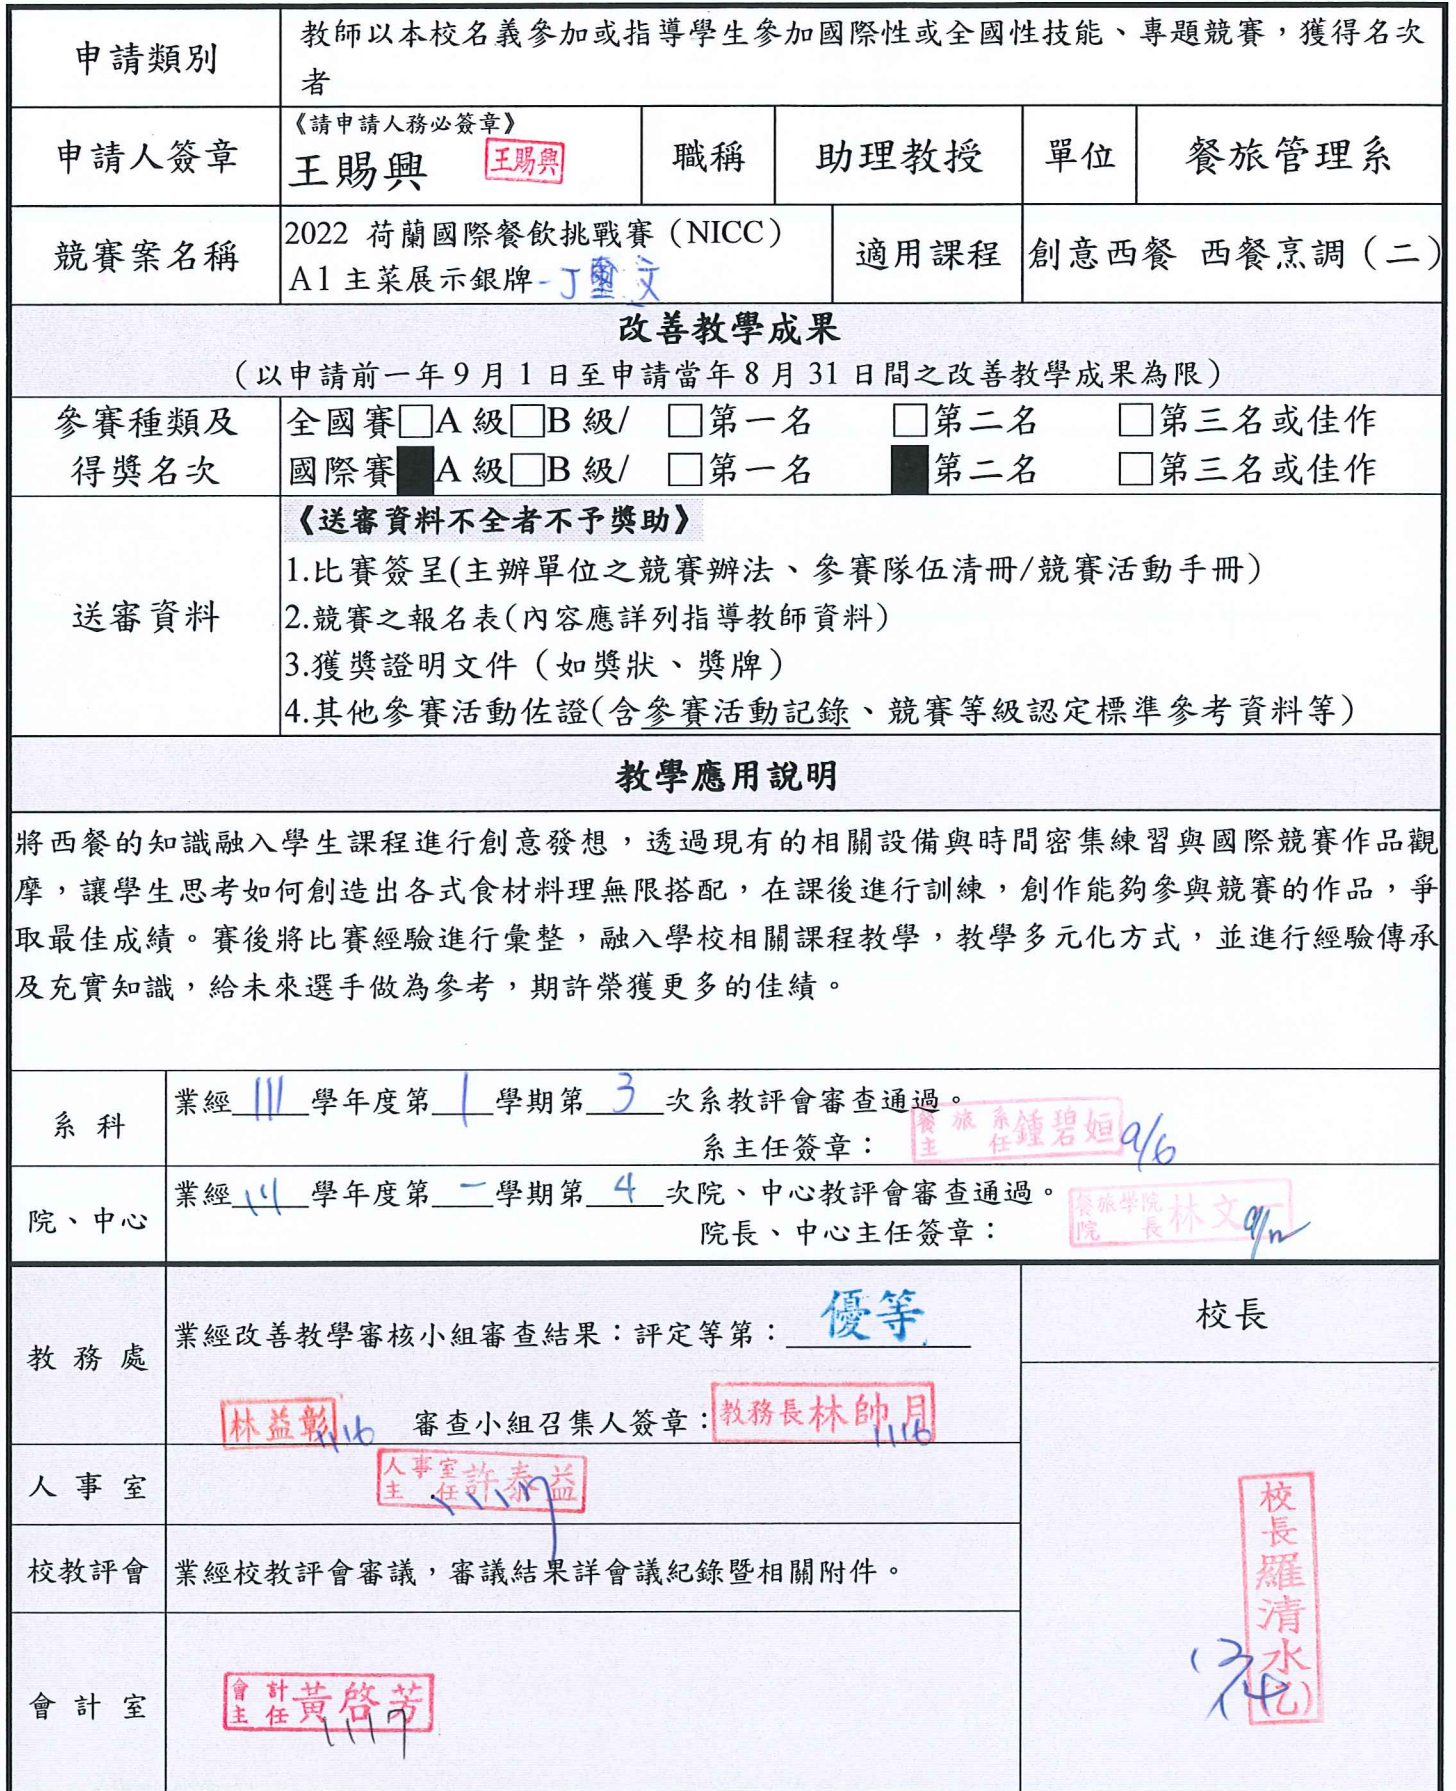 申請類別
教師以本校名義參加或指導學生參加國際性或全國性技能、專題競賽，獲得名次
者
申請人簽章
《請申請人務必簽章》
王賜興 王賜興
職稱
助理教授
單位
餐旅管理系
競賽案名稱
2022 荷蘭國際餐飲挑戰賽（NICC）
A1 主菜展示銀牌-丁 文
適用課程
創意西餐 西餐烹調（二）
改善教學成果
（以申請前一年 9 月 1 日至申請當年 8 月 31 日間之改善教學成果為限）
參賽種類及
得獎名次
全國賽□A 級□B 級/ □第一名 □第二名 □第三名或佳作
國際賽■A 級□B 級/ □第一名 ■第二名 □第三名或佳作
送審資料
《送審資料不全者不予獎助》
1.比賽簽呈(主辦單位之競賽辦法、參賽隊伍清冊/競賽活動手冊)
2.競賽之報名表(內容應詳列指導教師資料)
3.獲獎證明文件（如獎狀、獎牌）
4.其他參賽活動佐證(含參賽活動記錄、競賽等級認定標準參考資料等)
教學應用說明
將西餐的知識融入學生課程進行創意發想，透過現有的相關設備與時間密集練習與國際競賽作品觀
摩，讓學生思考如何創造出各式食材料理無限搭配，在課後進行訓練，創作能夠參與競賽的作品，爭
取最佳成績。賽後將比賽經驗進行彙整，融入學校相關課程教學，教學多元化方式，並進行經驗傳承
及充實知識，給未來選手做為參考，期許榮獲更多的佳績。
系 科
業經 111 學年度第 1 學期第 3 次系教評會審查通過。
系主任簽章： 餐旅系主任 鍾碧姮 9/6
院、中心
業經 111 學年度第 一 學期第 4 次院、中心教評會審查通過。
院長、中心主任簽章： 餐旅學院院長 林文一 9/12
教 務 處
業經改善教學審核小組審查結果：評定等第： 優等
林益彰 1116 審查小組召集人簽章： 教務長林帥月 1116
校長
人 事 室
人事室主任 許泰益 1117
校教評會
業經校教評會審議，審議結果詳會議紀錄暨相關附件。
會 計 室
會計主任 黃啓芳 1117
校長羅清水(乙)